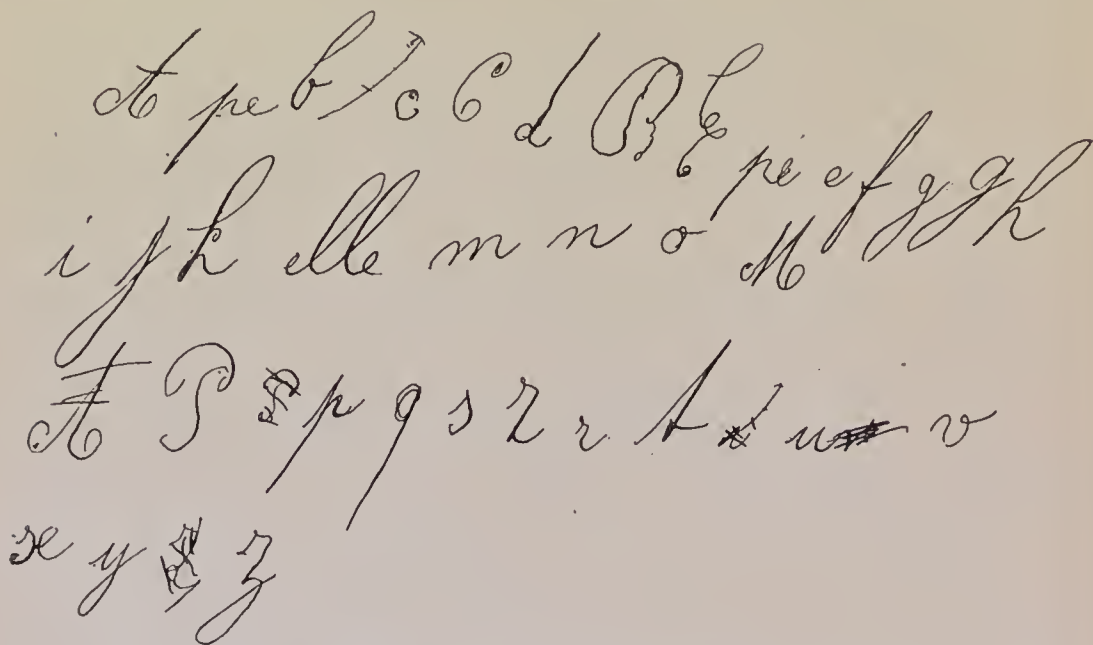 A pe b c C d B E pi e f g g h
i j k elle m n o M
A P p q s r t u v
x y z